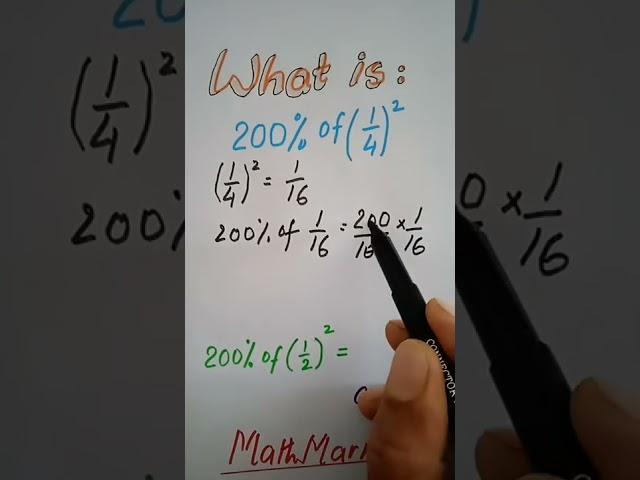 What is:
200% of (1/4)²
(1/4)² = 1/16
200% of 1/16 = 200/1 × 1/16
200% of (1/2)² =